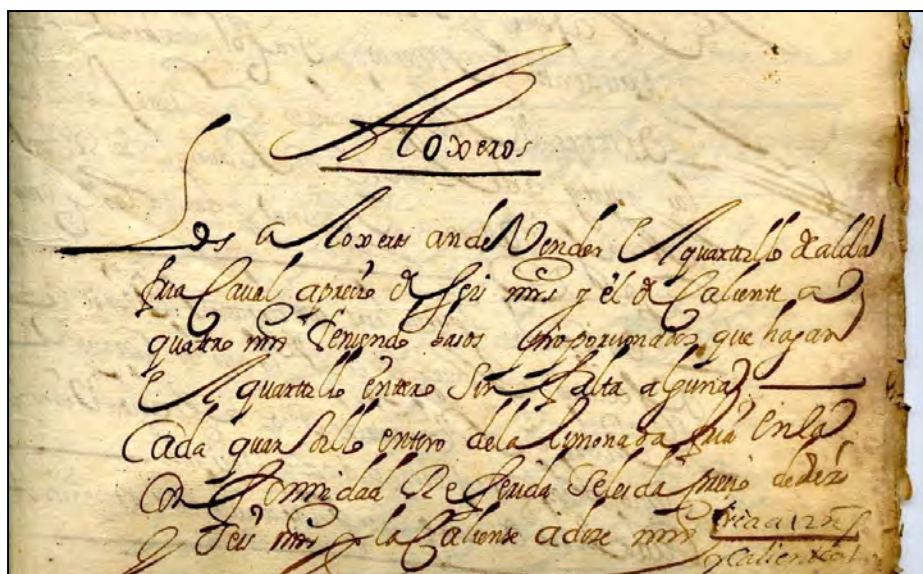 Aloxeros
Los Aloxeros ande Vender El quartillo de aloxa
fria Caval aprecio de seis mrs y el de Caliente a
quattro mrs teniendo basos proporcionados que hagan
El quartillo entero sin falta alguna
Cada quartillo entero dela limonada fria en la
Conformidad Referida seleida precio de diez
y seis mrs y la Caliente a doze mrs fria a 12 ms
y Caliente